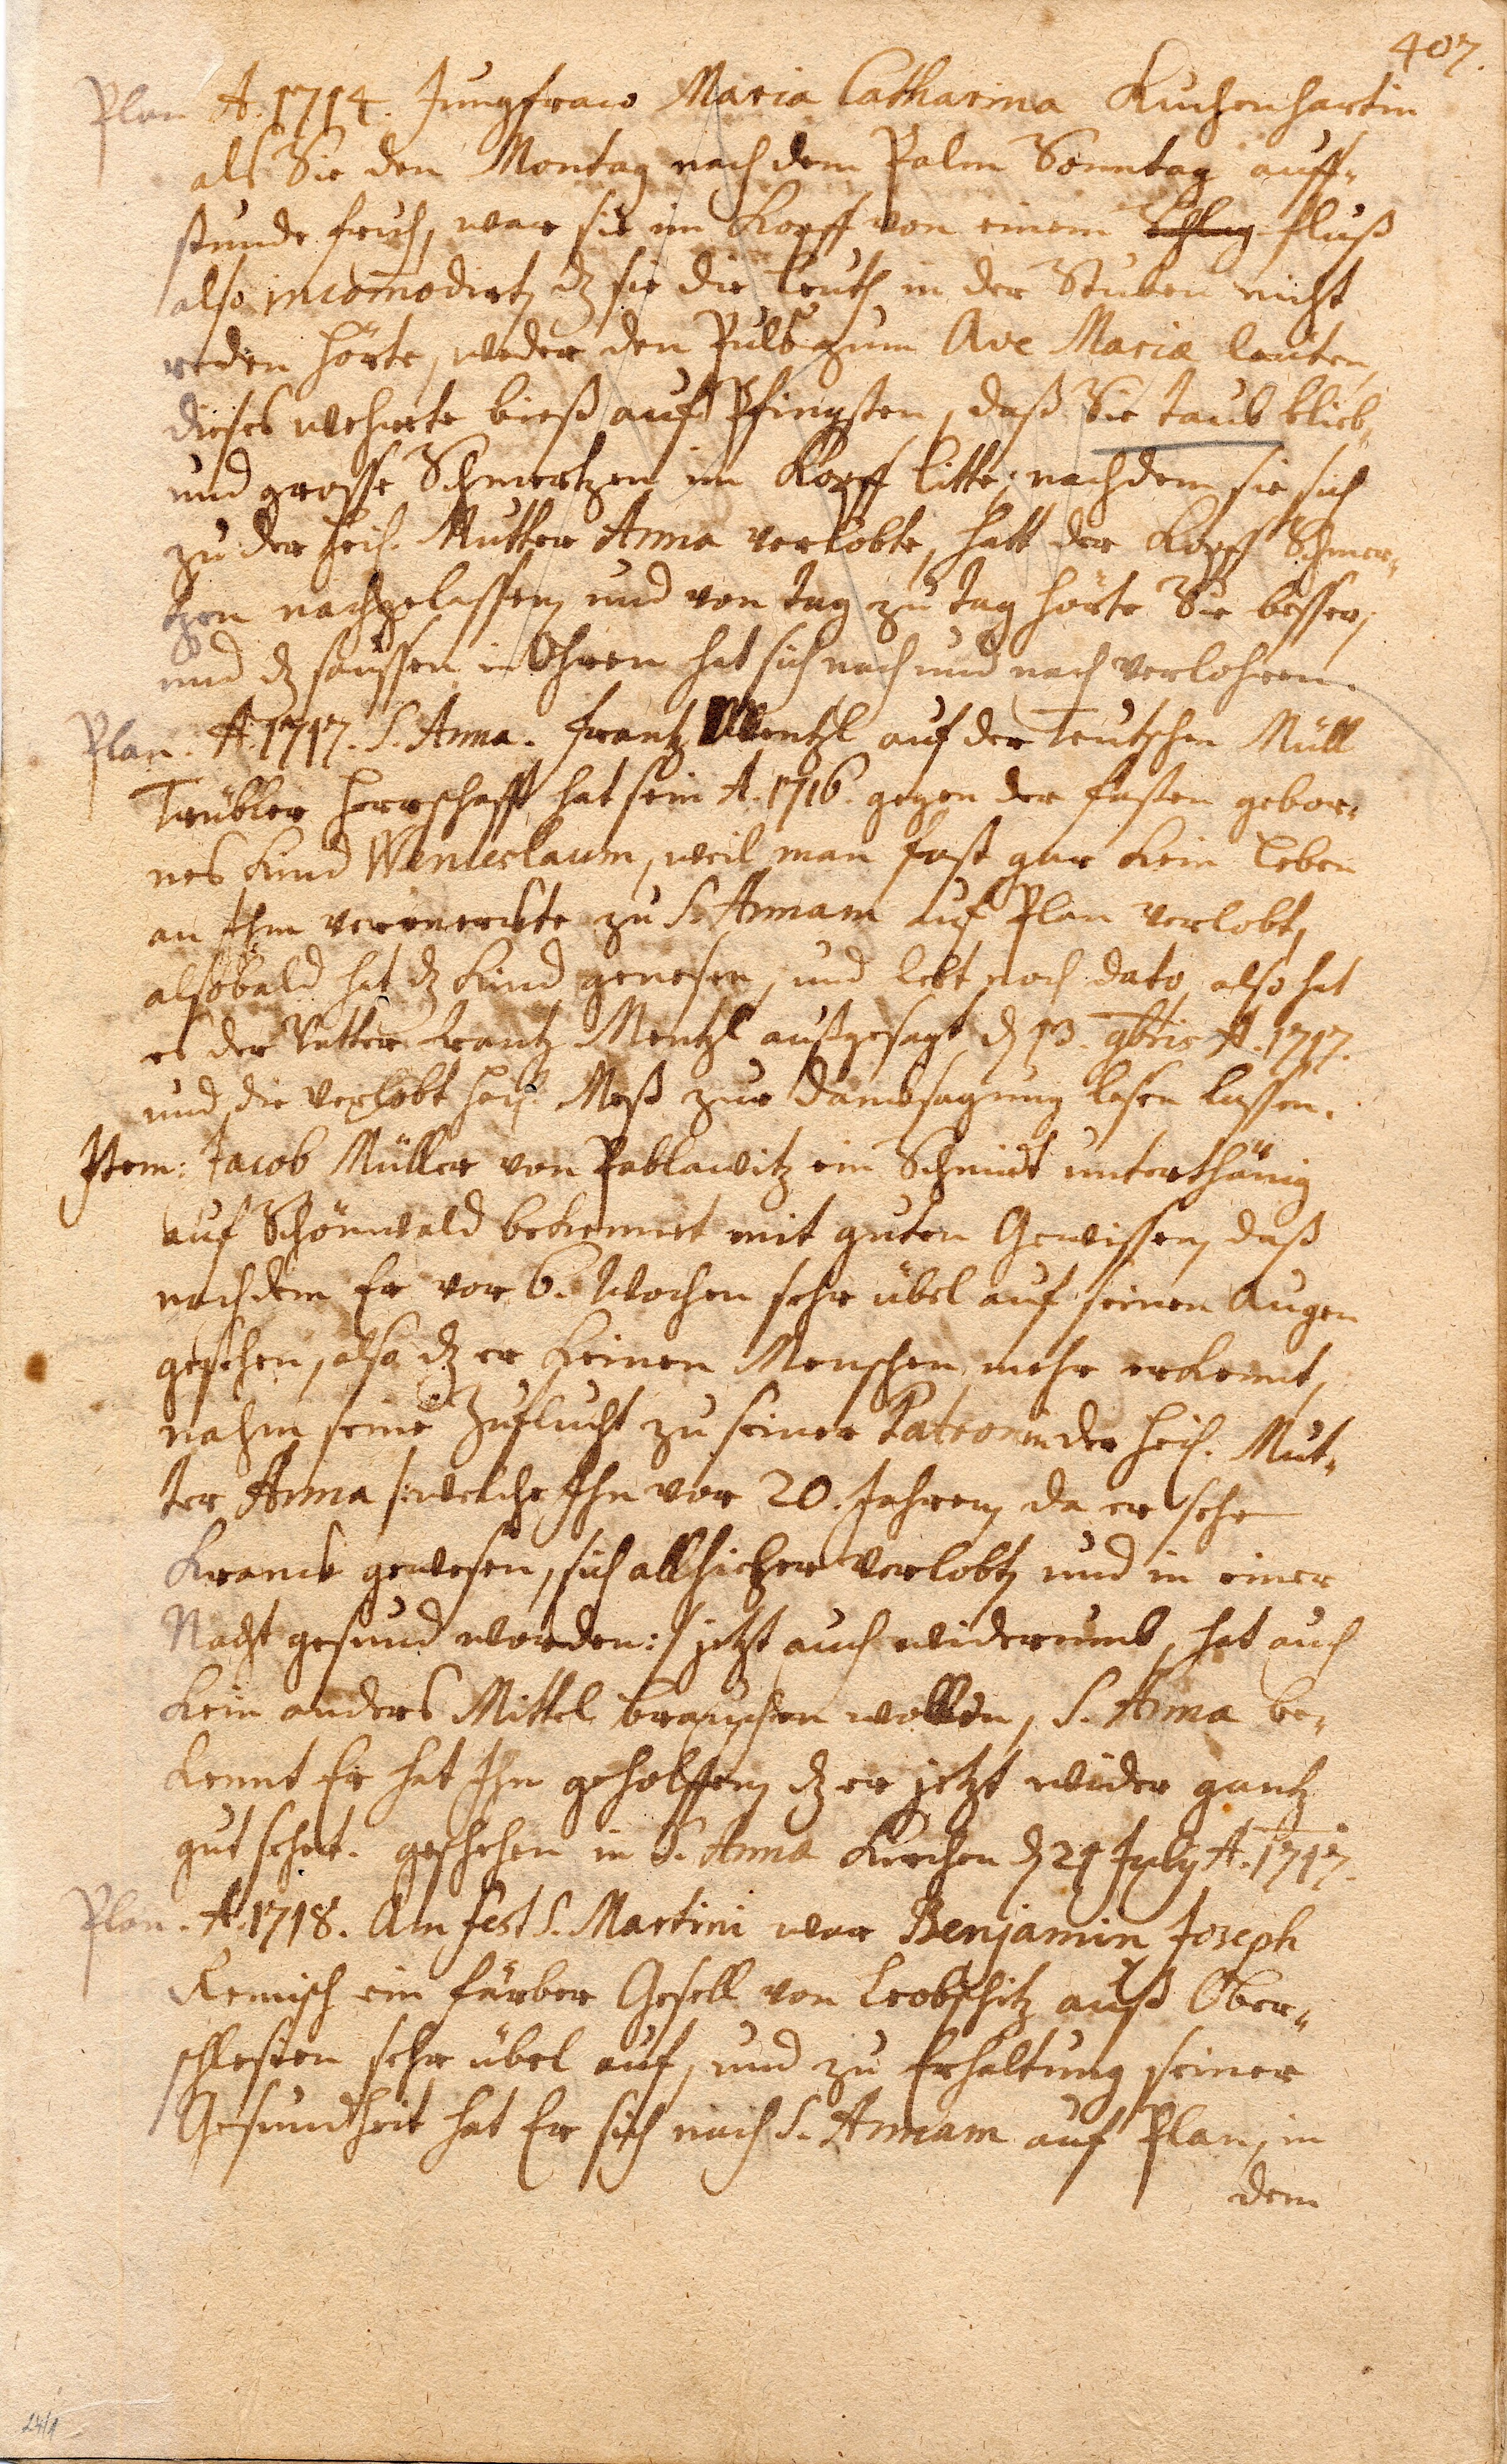 407.
Plan A. 1714. Jungfraw Maria Catharina Kuchenhartin
als Sie den Montag nach dem Palm Sonntag auff-
stunde fruh, war sie im Kopff von einem Schlag fluß
also incom̄odirt, dz sie die Leuth in der Stuben nicht
reden hörte, weder den Puls zum Ave Maria leuten,
dieses wehrete bieß auf Pfingsten, daß Sie taub blieb,
und grosse Schmertzen im Kopff litte; nachdem sie sich
zu der heil. Mutter Anna verlobte, hatt der Kopff Schmer-
tzen nachgelassen, und von tag zu tag hörte Sie besser,
und dz saussen in Ohren hat sich nach und nach verlohren.
Plan. A. 1717. S. Anna. Frantz Mentzl auf der Teutschen Müll
Trübler Herrschafft hat sein A. 1716. gegen der fasten gebor-
nes Kind Wenceslaum, weil man fast gar kein Leben
an Ihm vermerckte zu S. Annam auf Plan verlobt,
alsobald hat dz Kind genesen, und lebt noch dato, also hat
es der Vatter Frantz Mentzl außgesagt d. 13. 9bris A. 1717.
und die verlobt heil. Meß zur Dancksagung lesen lassen.
Item: Jacob Müller von Pablawitz ein Schmidt unterthänig
auf Schönwald bekennet mit guten Gewissen, daß
nachdem Er vor 6. Wochen sehr übel auf seinen Augen
gesehen, also dz er keinen Menschen mehr erkennt,
nahm seine Zuflucht zu seiner Patronin der heil. Mut-
ter Anna /:welche Ihn vor 20. Jahren, da er sehr
kranck gewesen, sich allhieher verlobt, und in einer
Nacht gesund worden:/ jetzt auch widerumb, hat auch
kein anders Mittel brauchen wollen, S. Anna be-
kennt Er hat Ihn geholffen, dz er jetzt wider gantz
gut sehet. geschehen in S. Anna Kirchen d. 21 July A. 1717.
Plan. A. 1718. Am fest S. Martini war Benjamin Joseph
Remisch ein färber Gesell von Leobschitz auß Ober-
schlesien sehr übel auf, und zu Erhaltung seiner
Gesundheit hat Er sich nach S. Annam auf Plan, in
dem